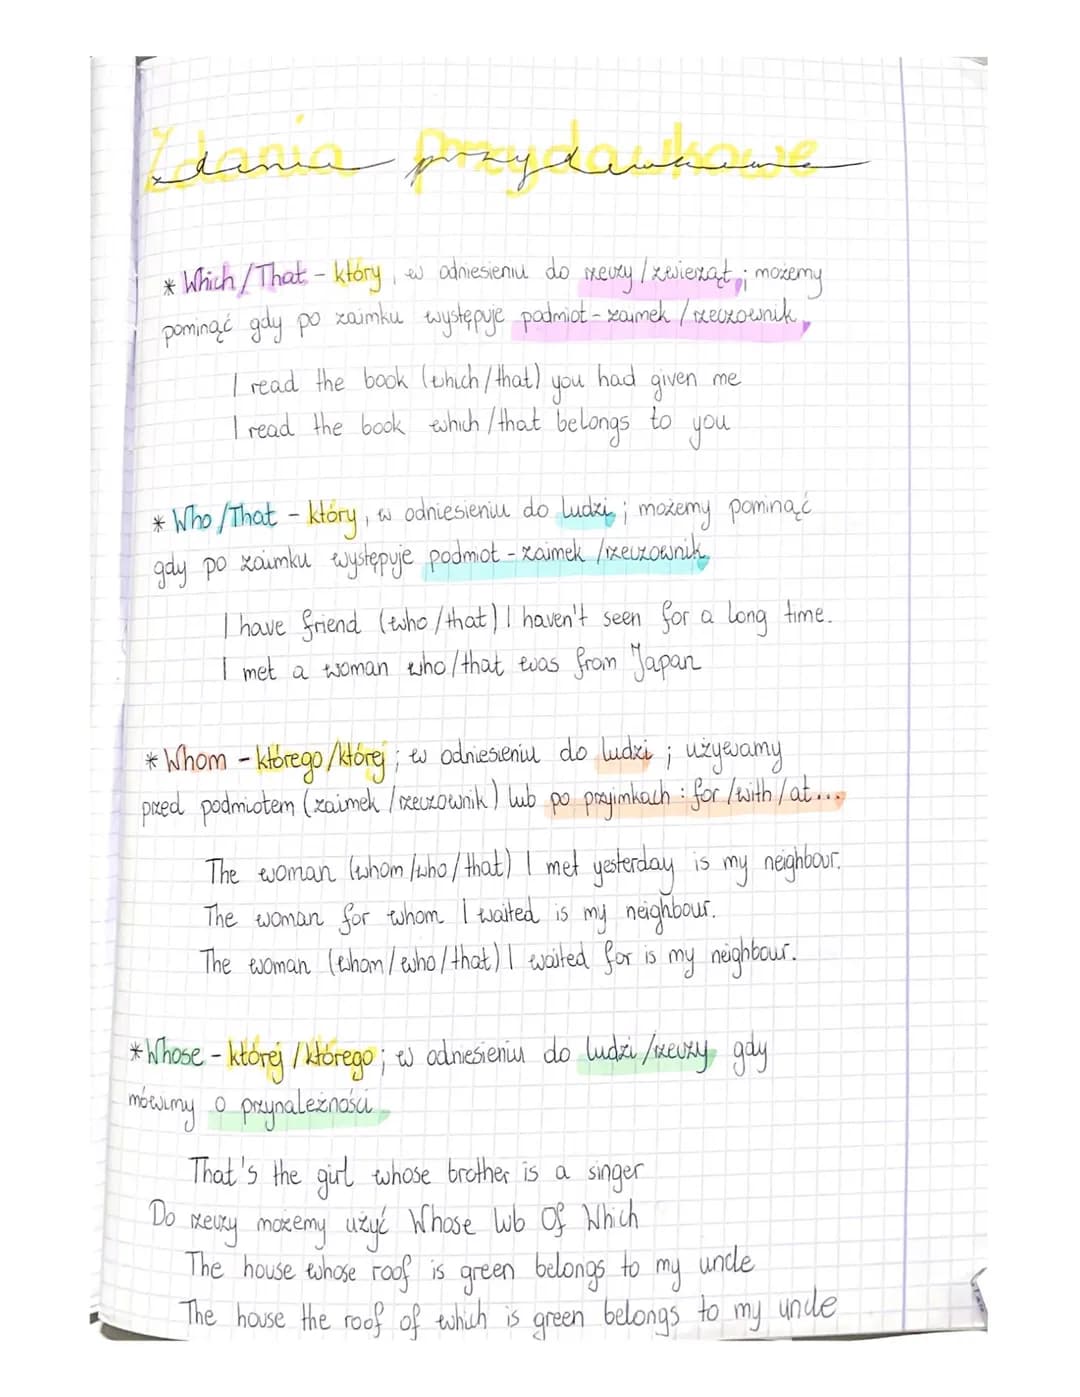 Zdania przydawkowe
* Which/That - który, w odniesieniu do rzeczy/zwierząt; możemy
pominąć gdy po zaimku występuje podmiot - zaimek/rzeczownik
I read the book (which/that) you had given me
I read the book which/that belongs to you
* Who/That - który, w odniesieniu do ludzi; możemy pominąć
gdy po zaimku występuje podmiot - zaimek/rzeczownik
I have friend (who/that) I haven't seen for a long time.
I met a woman who/that was from Japan
* Whom - którego/której; w odniesieniu do ludzi; używamy
przed podmiotem (zaimek/rzeczownik) lub po przyimkach: for/with/at...
The woman (whom/who/that) I met yesterday is my neighbour.
The woman for whom I waited is my neighbour.
The woman (whom/who/that) I waited for is my neighbour.
* Whose - której/którego; w odniesieniu do ludzi/rzeczy gdy
mówimy o przynależności
That's the girl whose brother is a singer
Do rzeczy możemy użyć Whose lub Of Which
The house whose roof is green belongs to my uncle
The house the roof of which is green belongs to my uncle